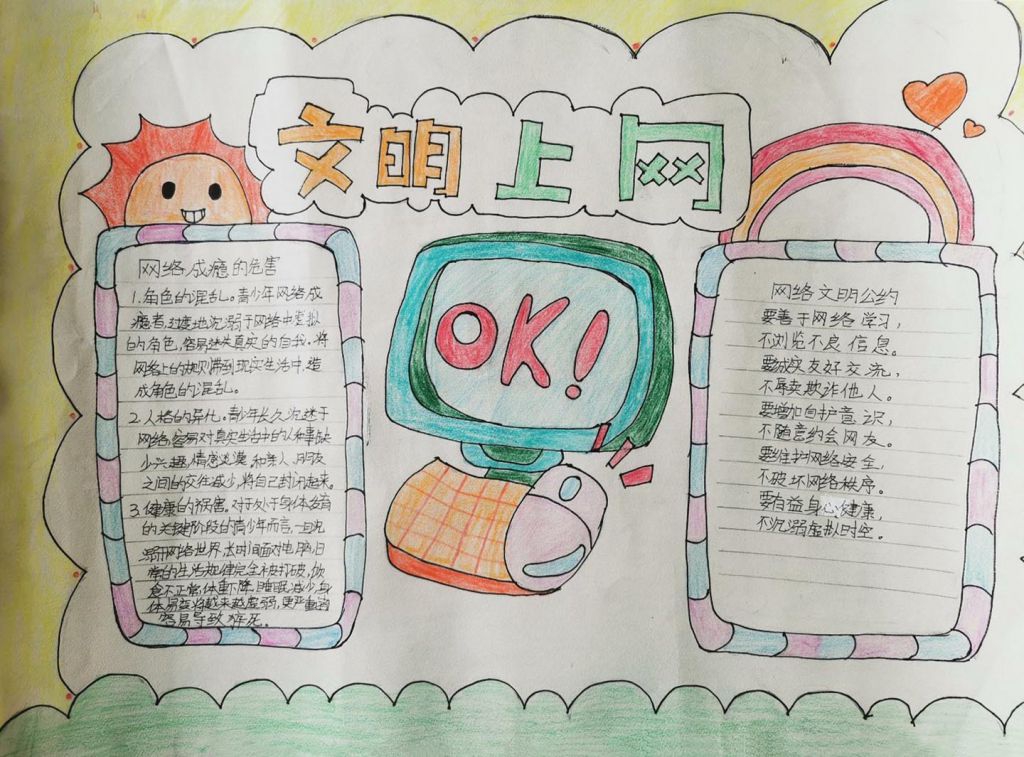 文明上网
网络成瘾的危害
1.角色的混乱。青少年网络成
瘾者,过度地沉溺于网络中虚拟
的角色,容易迷失真实的自我,将
网络上的规则带到现实生活中,造
成角色的混乱。
2.人格的异化。青少年长久沉迷于
网络,容易对真实生活中的人和事缺
少兴趣,情感淡漠,和亲人、朋友
之间的交往减少,将自己封闭起来。
3.健康的损害。对于处于身体发育
的关键阶段的青少年而言,一旦沉
溺于网络世界,长时间面对电脑,日
常的生活规律完全被打破,饮
食不正常,体重下降,睡眠减少,身
体易变得越来越虚弱,更严重的
容易导致猝死。
OK!
网络文明公约
要善于网络学习,
不浏览不良信息。
要诚实友好交流,
不辱卖欺诈他人。
要增加自护意识,
不随意约会网友。
要维护网络安全,
不破坏网络秩序。
要有益身心健康,
不沉溺虚拟时空。